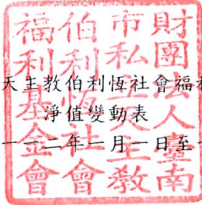 財團法人臺南
市私立天主教
伯利恆社會
福利基金會
天主教伯利恆社會福
淨值變動表
一二年一月一日至一